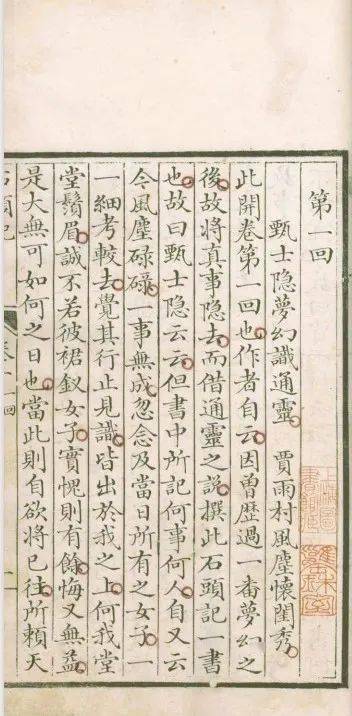 第一回
甄士隐夢幻識通靈　賈雨村風塵懷閨秀
此開卷第一回也作者自云因曽歷過一番夢幻之
後故將真事隐去而借通靈之說撰此石頭記一書
也故曰甄士隐云云但書中所記何事何人自又云
今風塵碌碌一事無成忽念及當日所有之女子一
一細考較去覺其行止見識皆出於我之上何我堂
堂鬚眉誠不若彼裙釵女子實愧則有餘悔又無益
是大無可如何之日也當此則自欲將已往所頼天
石頭記
回